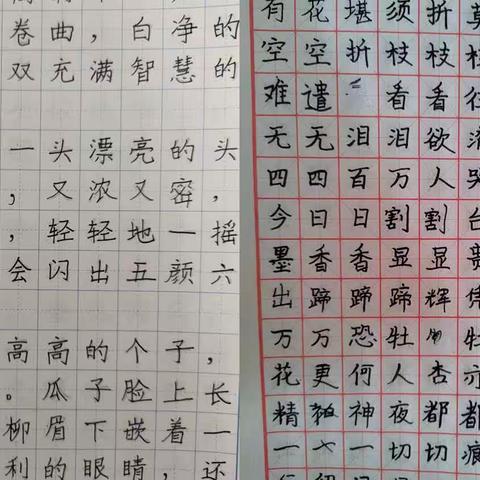 卷曲,白净的
双充满智慧的
一头漂亮的头
,又浓又密,
,轻轻地一摇
会闪出五颜六
高高的个子,
。瓜子脸上长
柳眉下嵌着一
利的眼睛,还
有花堪须折莫
空空折枝枝枝
难遣 看看往
无无泪泪欲
四四百万人哭
今日日割割台
墨香香显显贵
出蹄蹄蹄辉
万万恐牡 牡
花更何人杏亦
精 神夜都都
一 一切切痕